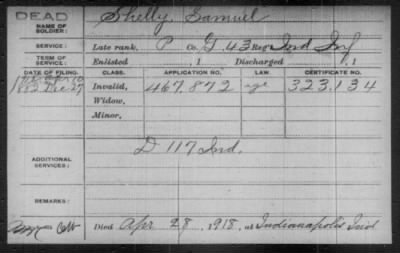 DEAD
NAME OF SOLDIER: Shelly Samuel
SERVICE: Late rank, P Co. G, 43 Reg't Ind Inf
TERM OF SERVICE: Enlisted , 1 Discharged , 1
DATE OF FILING. CLASS. APPLICATION NO. LAW. CERTIFICATE NO.
1882 Dec 27 Invalid, 467.872 age 323.134
Widow,
Minor,
ADDITIONAL SERVICES: D 117 Ind.
REMARKS:
Died Apr 28, 1918, at Indianapolis Ind